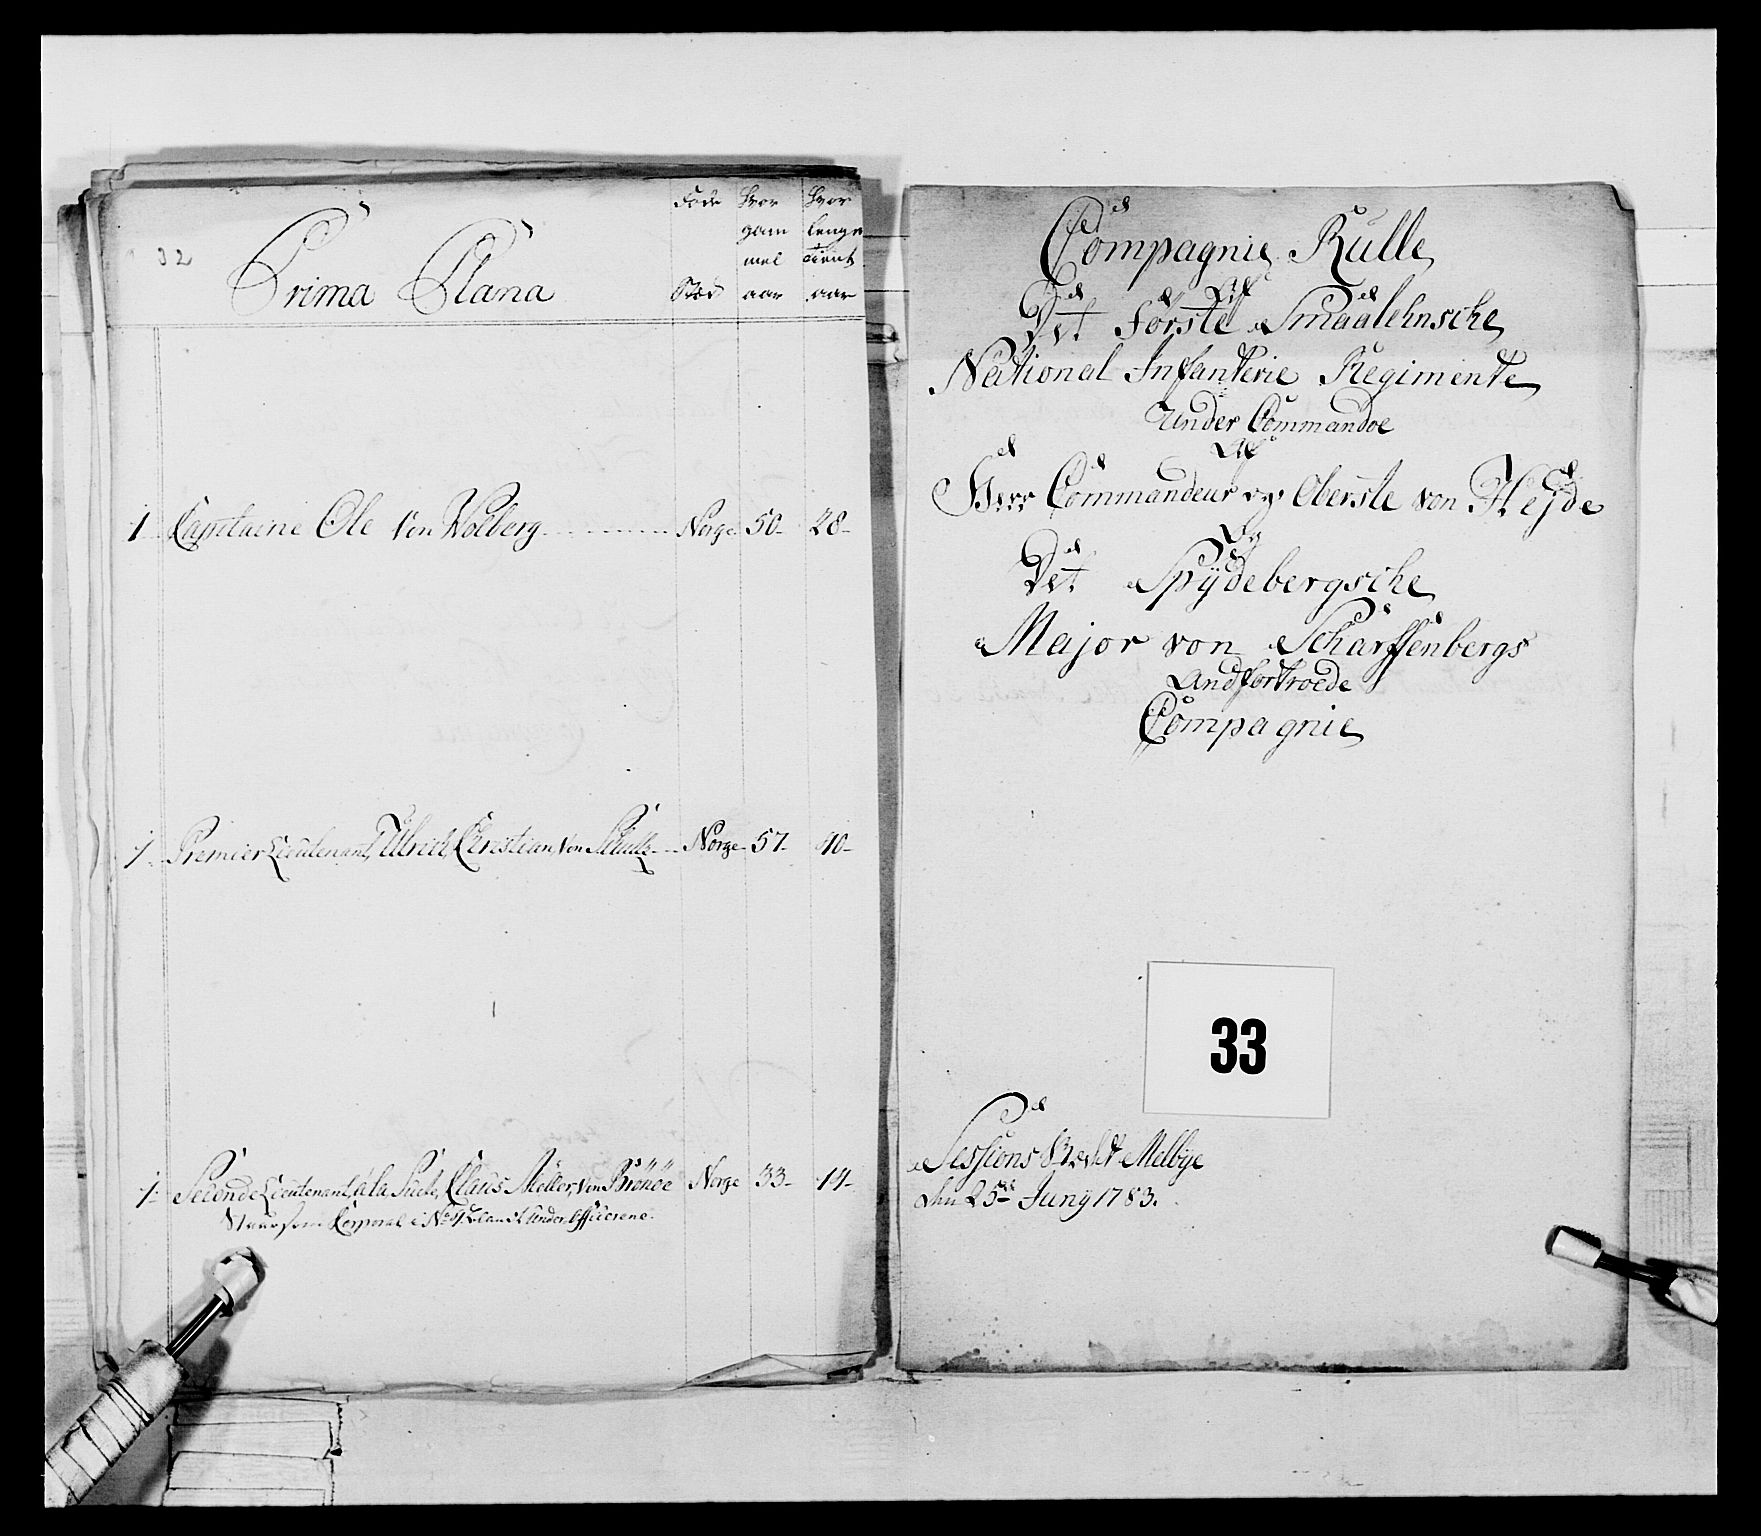 32
Prima Plana
Føde Stæd
Hvor gam mel aar
Hvor lenge tient aar
1 Capitaine Ole Von Wolberg Norge 50 28
1 Premier Lieutenant, Ulrich, Christian, Von Schultz Norge 57 40
1 Seconde Lieutenant, a la Suite, Claus Möller, Von Brönöe Norge 33 14
Staar som Corporal i No 4 blandt Under Officerene.
Compagnie Rulle
Af
Det Förste Smaalehnsche
National Infanterie Regimente
Under Commandoe
Af
Herr Commandeur og Oberste von Hejde
Og
Det Spydebergsche
Major von Scharffenbergs
Andfortroede
Compagnie
33
Sessions Stædet Melbye
den 25de Juny 1783.